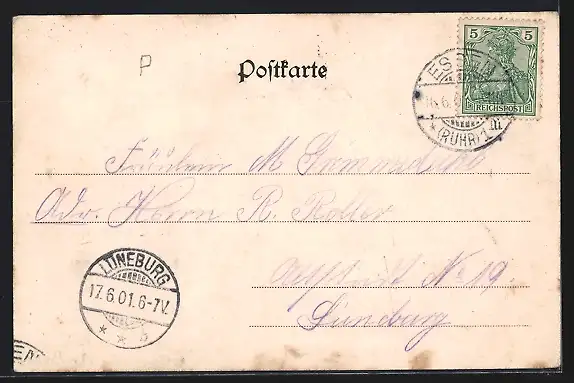 P
Postkarte
5 5
REICHSPOST
ESSEN
16.6.0
* (RUHR) 1
Fräulein M
Adr. Herrn R. Roller
No 19.
Lüneburg
LÜNEBURG
17.6.01.6-7V.
* * b
EN